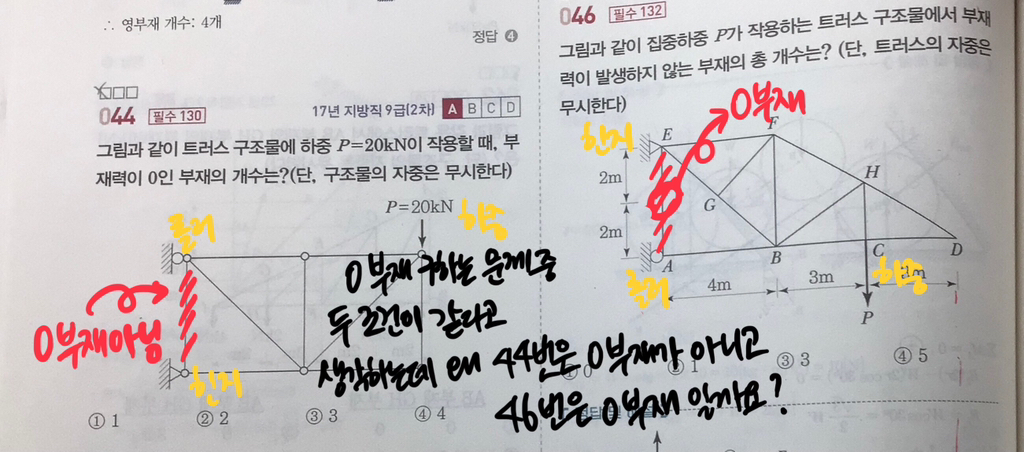 ∴ 영부재 개수: 4개
정답 ④
044 필수 130 17년 지방직 9급(2차) A B C D
그림과 같이 트러스 구조물에 하중 P=20kN이 작용할 때, 부
재력이 0인 부재의 개수는?(단, 구조물의 자중은 무시한다)
P=20kN
하중
롤러
0부재아님
힌지
① 1 ② 2 ③ 3 ④ 4
046 필수 132
그림과 같이 집중하중 P가 작용하는 트러스 구조물에서 부재
력이 발생하지 않는 부재의 총 개수는? (단, 트러스의 자중은
무시한다)
0부재
힌지
E F
2m
H
G
2m
A B C D
롤러
하중
4m 3m m
P
① 0 ② 1 ③ 3 ④ 5
0부재 구하는 문제중
두 조건이 같다고
생각하는데 왜 44번은 0부재가 아니고
46번은 0부재 일까요?